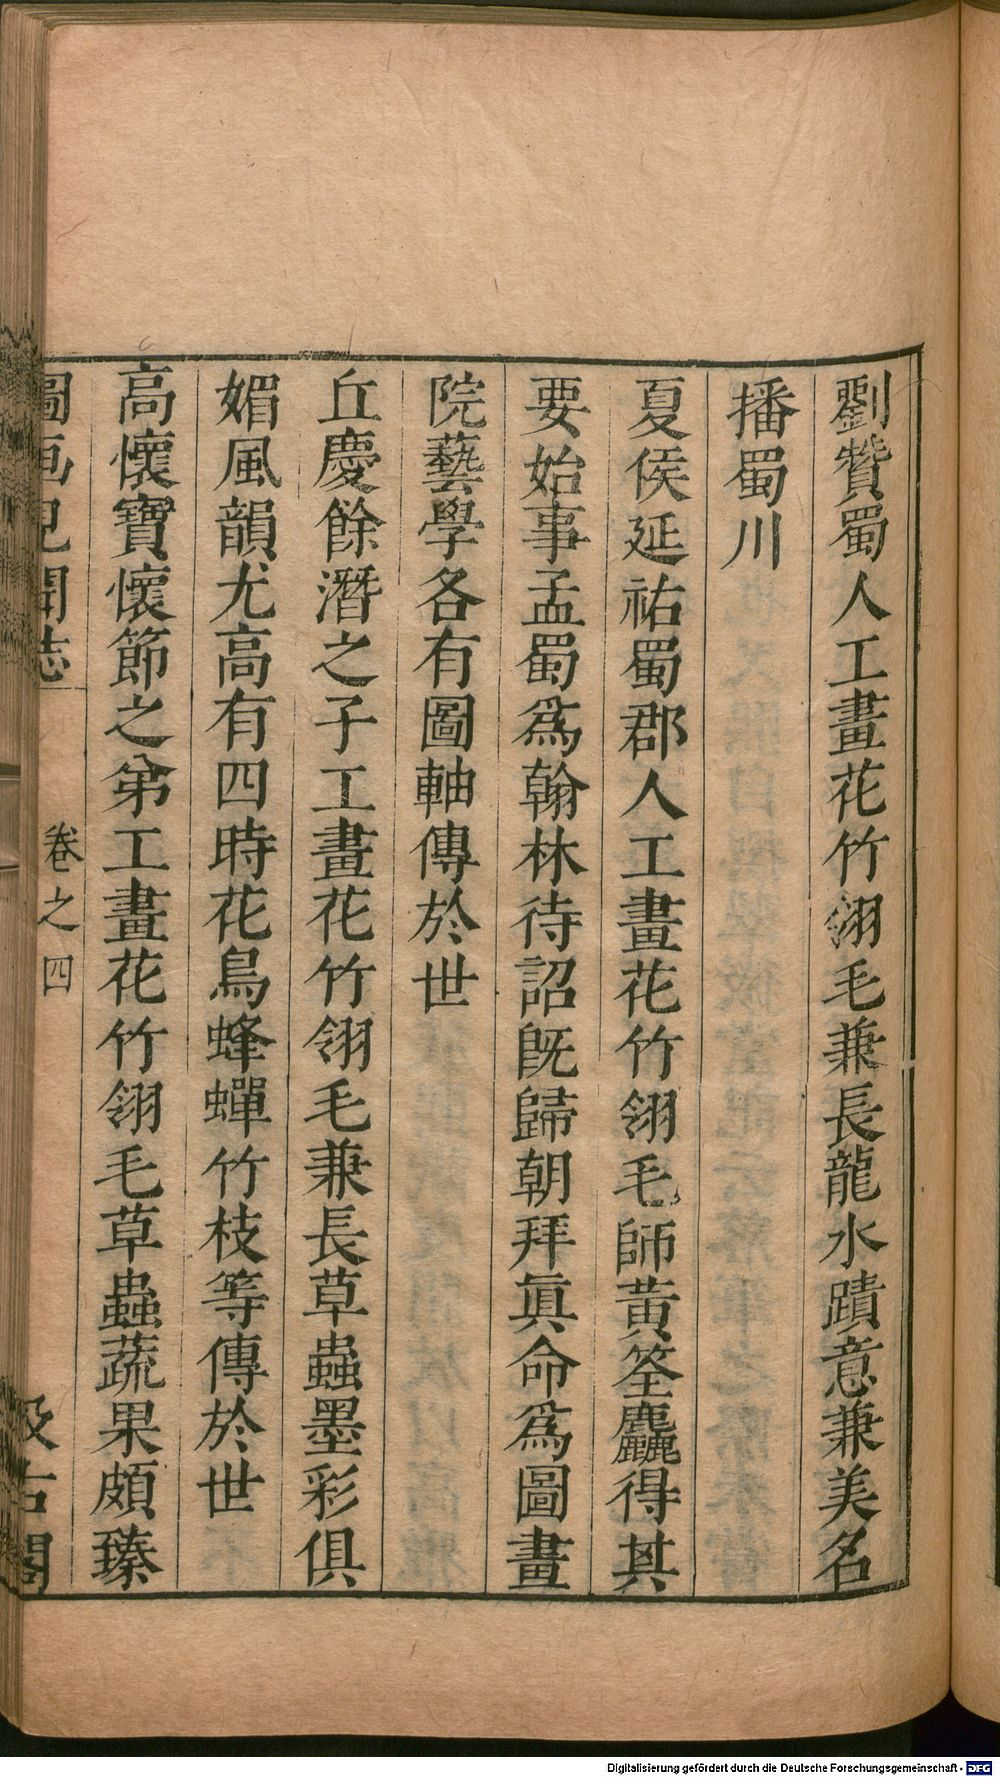 劉贊蜀人工畫花竹翎毛兼長龍水蹟意兼美名
播蜀川
夏侯延祐蜀郡人工畫花竹翎毛師黃筌麤得其
要始事孟蜀爲翰林待詔旣歸朝拜眞命爲圖畫
院藝學各有圖軸傳於世
丘慶餘潛之子工畫花竹翎毛兼長草蟲墨彩俱
媚風韻尤高有四時花鳥蜂蟬竹枝等傳於世
高懷寶懷節之弟工畫花竹翎毛草蟲蔬果頗臻
圖画見聞志 卷之四 汲古閣
Digitalisierung gefördert durch die Deutsche Forschungsgemeinschaft - DFG